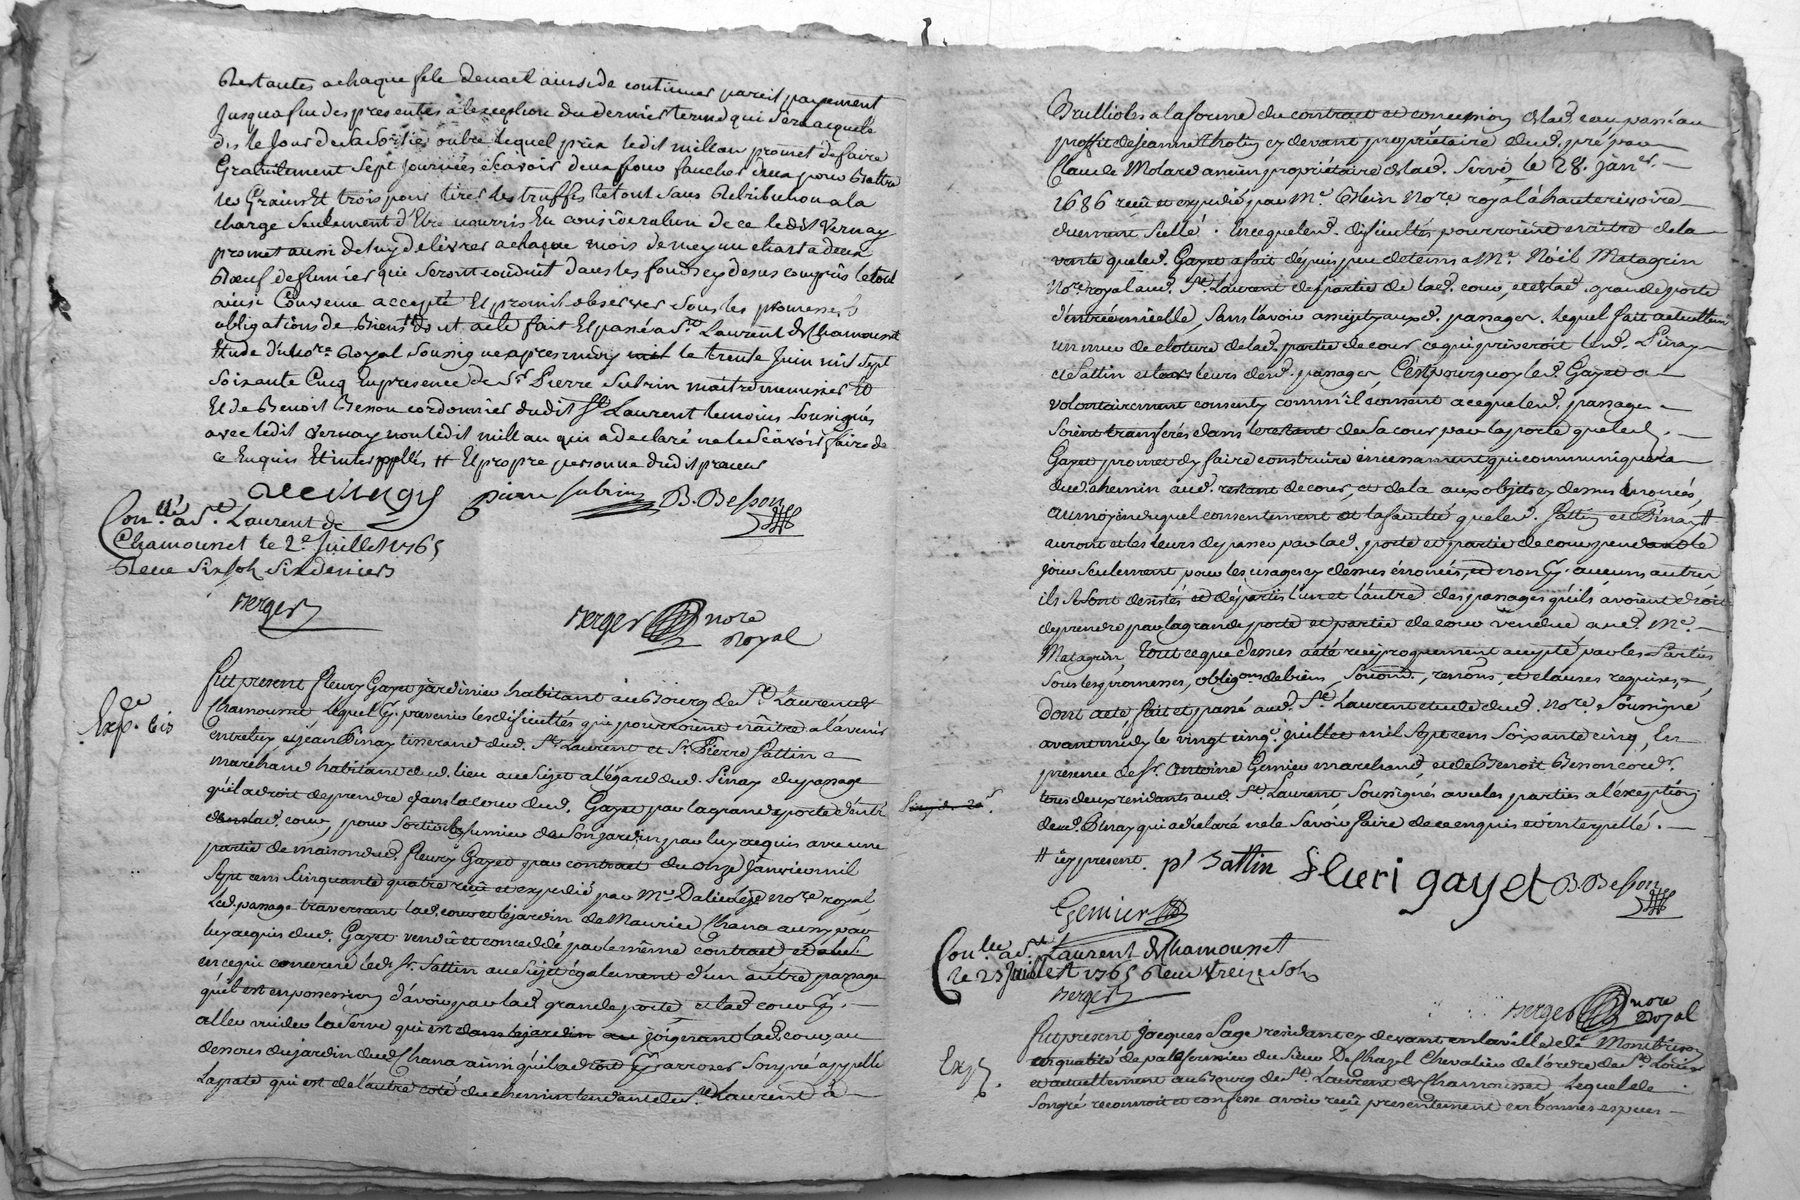 restantes a chaque fete denoel ainsi de continuer pareil payement
Jusqua fin des presentes a lexception du dernier terme qui sera acquité
dis le Jour de sa Sortie outre lequel prix ledit millau promet de faire
Gratuitement Sept Journées scavoir deux pour faucher deux pour Battre
les Grains Et trois pour tirer les truffes le tout sans retribution a la
charge seulement d'Etre nourris En consideration de ce ledit Vernay
promet aussi de luy delivrer a chaque mois de mey un chart a deux
Bœuf de fumier qui seront conduit dans les fonds cy desus compris le tout
ainsi Convenu accepté Et promis observer sous les promesses
obligations de Biens dt et acte fait Et passé a St Laurent de Chamousset
Etude d'u Nore Royal Soussigné apres midy le treise Juin mil Sept
Soixante Cinq En presence de Sr Pierre Subrin maitre menuisier Et
Et de Benoit Besson cordonnier dudit St Laurent temoins Soussignés
avec ledit Vernay non ledit millau qui a declaré ne le Scavoir faire de
ce Enquis Et interppellés # Et propre personne dudit preneur
pierre subrin B. Besson
Conllé a St Laurent de
Chamousset le 2e Juillet 1765
Reçu Six sols Six deniers
Berger
Berger nore
Royal
Expe bis
fut present fleury Gayet jardinier habitant au Bourg de St Laurent de
Chamousset lequel pr prevenir les dificultés qui pourroient naître a l'avenir
entre luy et jean Pinay tisserand dud. St Laurent et Sr Pierre fattin
marchand habitant dud. lieu au Sujet a l'égard dud. Pinay du passage
qu'il a droit de prendre dans la cour dud. Gayet par la grande porte d'entré
dans lad. cour, pour sortir les fumier de Son jardin par luy acquis avec une
partie de maison dud. fleury Gayet par contract du onze Janvier mil
Sept cens Cinquante quatre reçû et expedié par Me Nore royal,
Led. passage traversant lad. cour et le jardin de Maurice Chana aussy par
luy acquis dud. Gayet vendû et concedé par le même contract
en ce qui concerne led. Sr. fattin au Sujet également d'un autre passage
qu'il est en possession d'avoir par lad. grande porte et lad. cour pr
aller vuider la Serve qui est dans le jardin au joignant lad. cour, au
dessous du jardin dud. Chana ainsi qu'il a droit pr arroser Son pré appellé
la prate qui est de l'autre coté du chemin tendant de St Laurent à
Brullioles a la forme du contract et concession de lad. eau passé au
proffit de jeanne Thotin cy devant propriétaire dud. pré par
Claude Molard ancien propriétaire de lad. Serve le 28. Janer
1686 reçû et expedié par Me. Nore royal à hauterivoire
duement Scellé. Et ce que led. dificultés pourroient naître de la
vente que led. Gayet a fait dépuis peu de tems a Me Nöel Matagrin
Nore royal aud. St Laurent de partie de lad. cour, et de lad. grande porte
d'entrée icelle, sans l'avoir assujety aux d. passages. Lequel fait actuellemt
un mur de cloture de lad. partie de cour ce qui priveroit led. Pinay
et fattin et leurs desd. passages, C'est pourquoy led. Gayet a
volontairement consenty comm'il consent a ce que led. passages
Soient transférés dans le restant de sa cour par la porte que led.
Gayet promet d'y faire construire incessament qui communiquera
dud. chemin aud. restant de cour, et de la aux objets cy dessus énoncés,
au moyen duquel consentement et la faculté que led. fattin et Pinay #
auront et les leurs de passer par lad. porte et partie de cour pendant le
jour seulement, pour les usages cy dessus énoncés, et non pr aucuns autres
ils Se sont desistés et départis l'un et l'autre des passages qu'ils avoient droit
de prendre par la grande porte et partie de cour vendüe aud. Me.
Matagrin, tout ce que dessus a été réciproquement accepté par les Parties
sous les promesses, obligons de biens, soumis, renons, et clauses requises,
dont acte, fait et passé aud. St Laurent etude dud. Nore. Soussigné
avant midy le vingt cinq juillet mil Sept cens Soixante cinq, En
présence de Sr. Antoine Gemier marchand, et de Benoit Besson cordr.
tous deux residants aud. St Laurent Soussignés avec les parties a l'exception
dud. Pinay qui a déclaré ne le Savoir faire de ce enquis et interpellé.
# icy present. pr fattin fleuri gayet B. Besson
Gemier
Conllé a St Laurent de Chamousset
le 25 Juillet 1765 Reçu treize Sols
Berger
Berger nore
Royal
Exp
fut present jacques Sage residant cy devant en la ville de Montbrison
en qualité de palefournier du Sieur Chevalier de l'ordre de St Louis
et actuellement au Bourg de St Laurent de Chamousset Lequel de
Son gré reconnoit et confesse avoir reçû presentement en bonnes especes